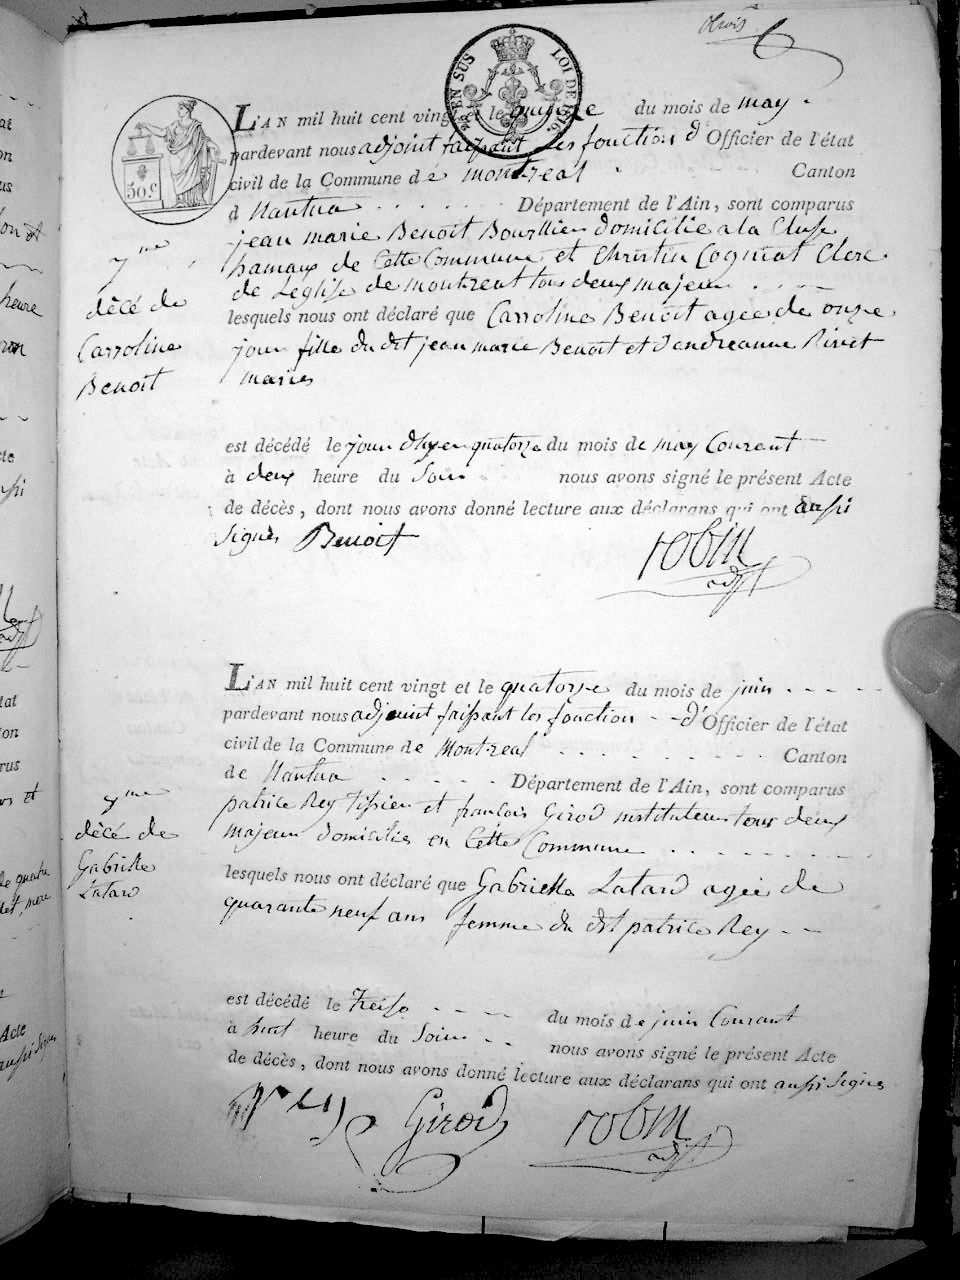 trois
EN SUS LOI DE 1816
50 c.
L'AN mil huit cent vingt et le quinze du mois de may
pardevant nous adjoint faissant les fonction d'Officier de l'état
civil de la Commune de montreal Canton
d Nantua Département de l'Ain, sont comparus
jean marie Benoit Bourllier domicilié a la Cluse
hamaux de Cette Commune et Christin Cogniat Clerc
de Leglise de montreal tous deux majeur
lesquels nous ont déclaré que Carroline Benoit agée de onze
jour fille du dit jean marie Benoit et d'andreanne Rivet
maries
7me
décé de
Carroline
Benoit
est décédé le jour d'hyer quatorze du mois de may Courant
à deux heure du Soir nous avons signé le présent Acte
de décès, dont nous avons donné lecture aux déclarans qui ont aussi
signés Benoit robin
adjt
L'AN mil huit cent vingt et le quatorze du mois de juin
pardevant nous adjoint faissant les fonction d'Officier de l'état
civil de la Commune de Montreal Canton
de Nantua Département de l'Ain, sont comparus
patrice Rey Tissier et francois Girod instituteur tous deux
majeur domiciliés en Cette Commune
lesquels nous ont déclaré que Gabriella Latard agée de
quarante neuf ans femme du dit patrice Rey
décé de
Gabrielle
Latard
est décédé le treize du mois de juin Courant
à huit heure du Soir nous avons signé le présent Acte
de décès, dont nous avons donné lecture aux déclarans qui ont aussi signes
Rey Girod robin
adjt